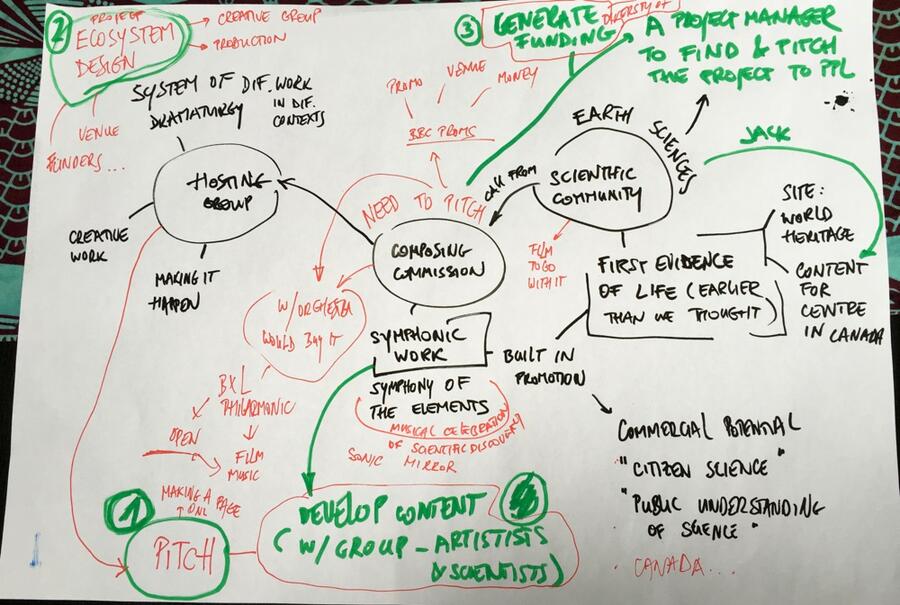 2
PROJECT
ECOSYSTEM
DESIGN
CREATIVE GROUP
PRODUCTION
VENUE
FUNDERS...
SYSTEM OF DIF. WORK
DRAMATURGY
IN DIF.
CONTEXTS
HOSTING
GROUP
CREATIVE
WORK
MAKING IT
HAPPEN
3
GENERATE
FUNDING
DIVERSITY OF
A PROJECT MANAGER
TO FIND & PITCH
THE PROJECT TO PPL
PROMO
VENUE
MONEY
BBC PROMS
NEED TO PITCH
EARTH
SCIENCES
SCIENTIFIC
COMMUNITY
CALL FROM
COMPOSING
COMMISSION
FILM
TO GO
WITH IT
JACK
SITE:
WORLD
HERITAGE
CONTENT
FOR
CENTRE
IN CANADA
FIRST EVIDENCE
OF LIFE (EARLIER
THAN WE THOUGHT)
W/ORCHESTRA
WOULD BUY IT
BXL
PHILARMONIC
OPEN
FILM
MUSIC
SYMPHONIC
WORK
SYMPHONY OF
THE ELEMENTS
MUSICAL CELEBRATION
OF SCIENTIFIC DISCOVERY
SONIC
MIRROR
BUILT IN
PROMOTION
COMMERCIAL POTENTIAL
"CITIZEN SCIENCE"
"PUBLIC UNDERSTANDING
OF SCIENCE"
CANADA...
1
MAKING A
ONE PAGE
PITCH
DEVELOP CONTENT
(W/ GROUP - ARTISTISTS
& SCIENTISTS)